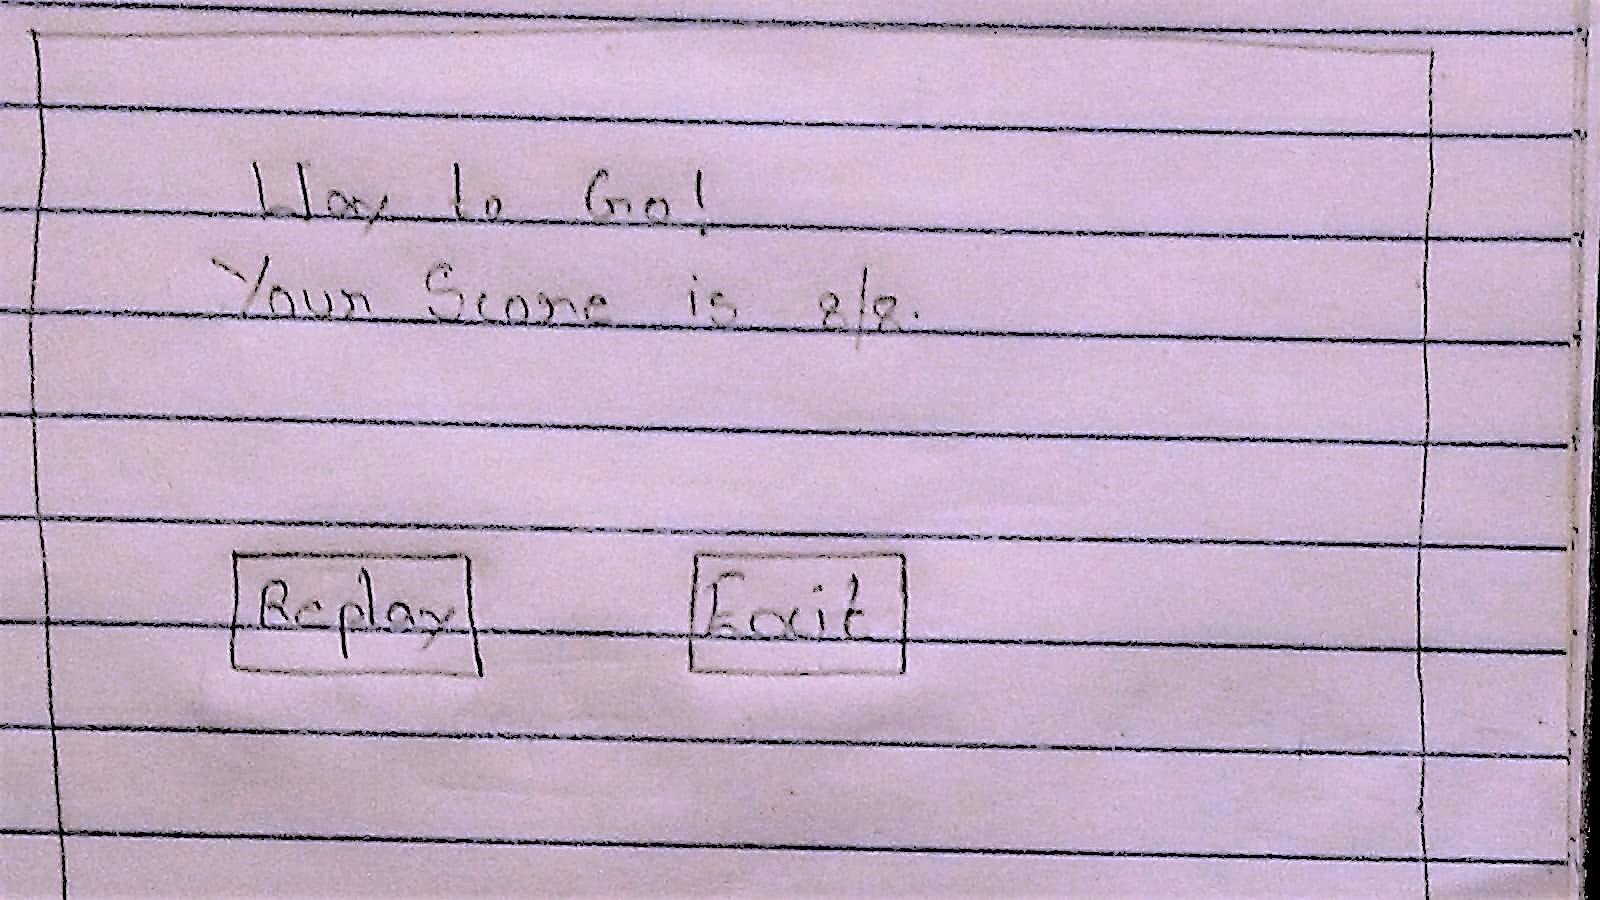 Way to Go!
Your Score is 8/8.
Replay Exit